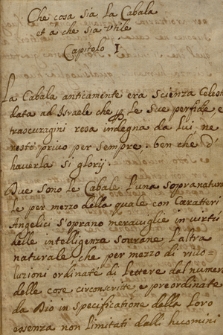 Che cosa sia la Cabala
et a che sia Utile
Capitolo I
La Cabala anticamente era Scienza Celeste
data ad Isrele che p le sue perfidie e
trascuragini resa indegna da lui ne
restò privo per sempre, ben che d'
haverla si glorij.
Due sono le Cabale l'una sopranatura
le per mezzo della quale con Caratteri
Angelici s'oprano meraviglie in virtù
delle intelligenze sourane, l'altra
naturale che per mezzo di
luzioni ordinate di lettere dal numero
delle cose circonscrite e preordinate
da Dio in specificatione della loro
essenza non limitati dall'